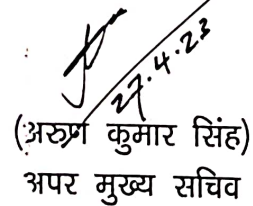 27.4.23
(अरुण कुमार सिंह)
अपर मुख्य सचिव